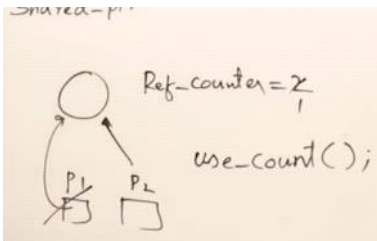 Ref_counter = 2
1
use_count();
P1 P2